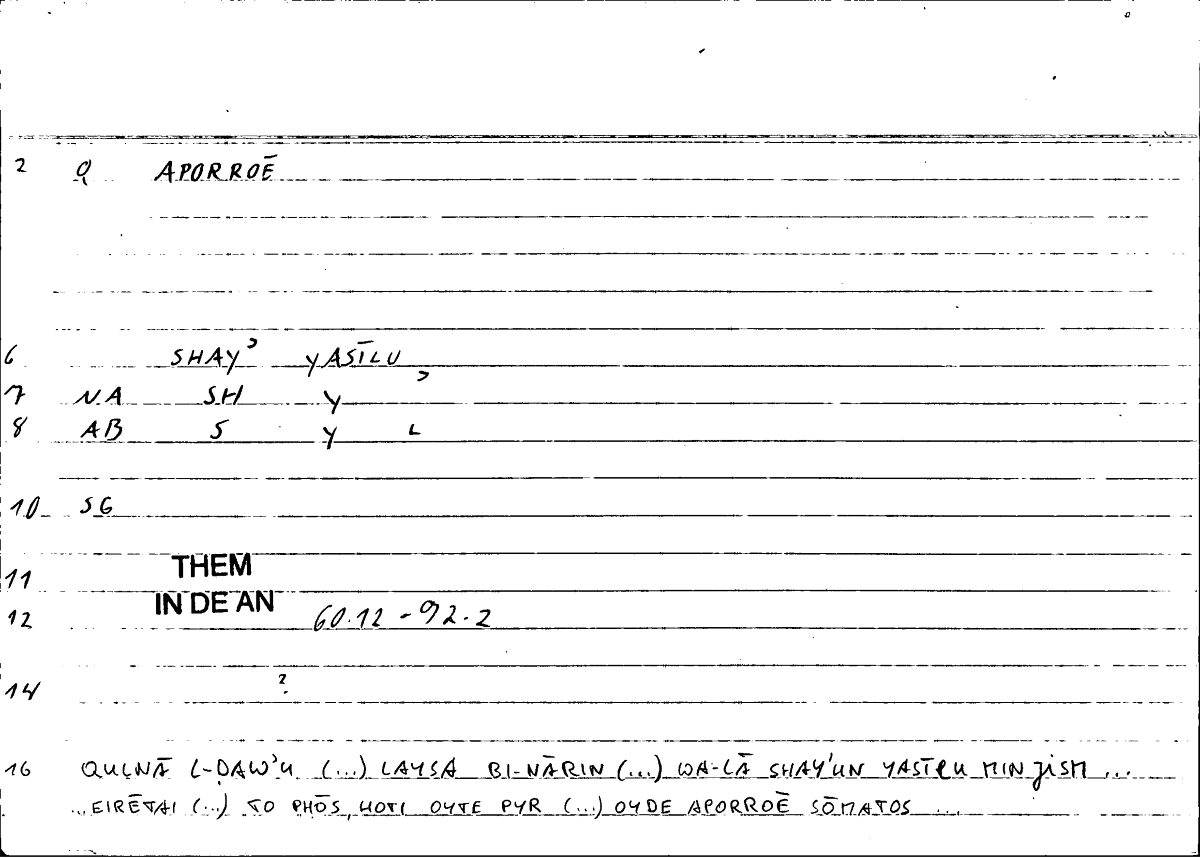 2 Q APORROĒ
6 SHAYʾ YASĪLU
7 NA SH Y ʾ
8 AB S Y L
10 SG
11 THEM
IN DE AN
12 60.12 - 92.2
14 ?
16 QULNĀ L-ḌAWʾU (...) LAYSA BI-NĀRIN (...) WA-LĀ SHAY'UN YASĪLU MIN JISM ...
...EIRĒTAI (...) TO PHŌS, HOTI OYTE PYR (...) OYDE APORROĒ SŌMATOS ...